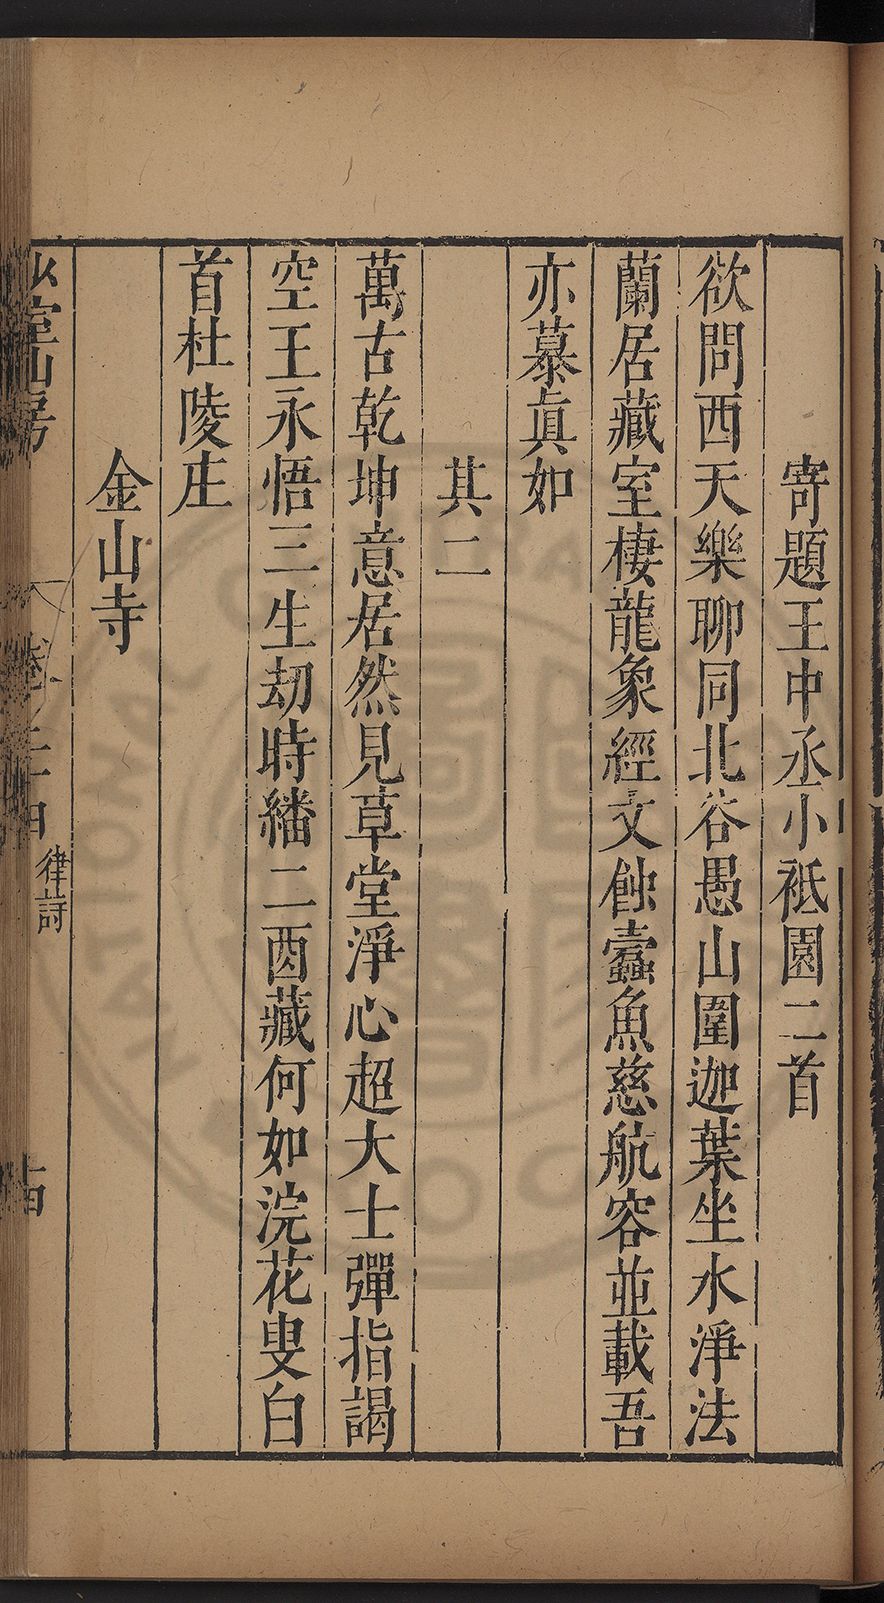 寄題王中丞小祗園二首
欲問西天樂聊同北谷愚山圍迦葉坐水淨法
蘭居藏室棲龍象經文蝕蠹魚慈航容並載吾
亦慕眞如
其二
萬古乾坤意居然見草堂淨心超大士彈指謁
空王永悟三生刼時繙二酉藏何如浣花叟白
首杜陵庄
金山寺
室山房
律詩